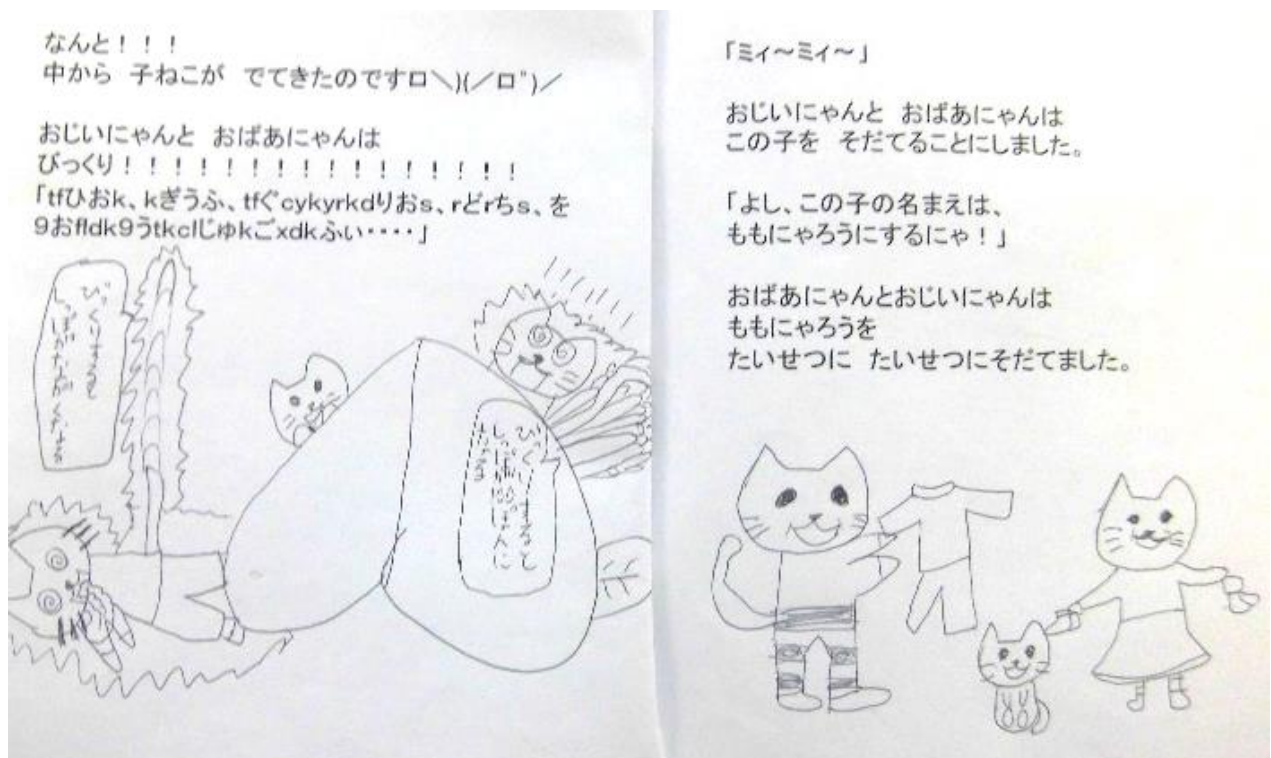 なんと！！！
中から　子ねこが　でてきたのですロ＼)(／ロ゛)／
おじいにゃんと　おばあにゃんは
びっくり！！！！！！！！！！！！！！！！
「tfひおk、kぎうふ、tfぐcykyrkdりおs、rどrちs、を
9おfldk9うtkclじゅkごxdkふい・・・・」
びっくりすると
びっくりすると
しっぽが
「ミィ～ミィ～」
おじいにゃんと　おばあにゃんは
この子を　そだてることにしました。
「よし、この子の名まえは、
ももにゃろうにするにゃ！」
おばあにゃんとおじいにゃんは
ももにゃろうを
たいせつに　たいせつにそだてました。